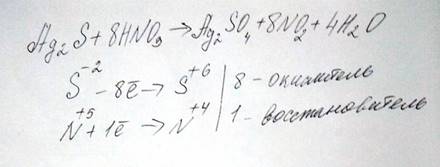 Ag₂S + 8HNO₃ → Ag₂SO₄ + 8NO₂ + 4H₂O
S⁻² - 8ē → S⁺⁶ | 8 - окислитель
N⁺⁵ + 1ē → N⁺⁴ | 1 - восстановитель